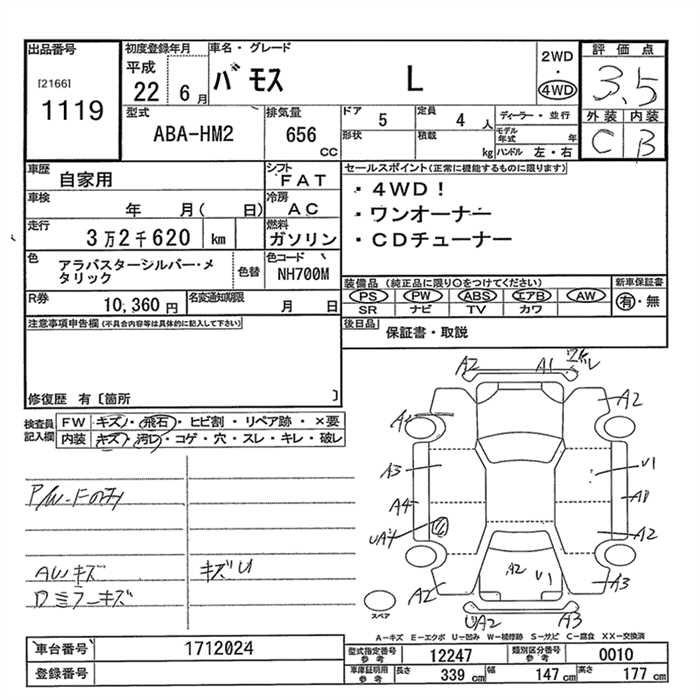 出品番号
[2166]
1119
初度登録年月
平成
22 6月
車名・グレード
バモス L
2WD
・
4WD
評価点
3.5
外装 内装
C B
型式
ABA-HM2
排気量
656
CC
ドア 5
形状
定員 4 人
積載 kg
ディーラー・並行
モデル年式 年
ハンドル 左・右
車歴
自家用
シフト
FAT
車検
年 月( 日)
冷房
AC
走行
3万2千620 km
燃料
ガソリン
色
アラバスターシルバー・メタリック
色替
色コード
NH700M
R券
10,360円
名変通知期限
月 日
セールスポイント(正常に機能するものに限ります)
・4WD!
・ワンオーナー
・CDチューナー
装備品(純正品に限り○をつけてください)
PS PW ABS エアB AW
SR ナビ TV カワ
新車保証書
有・無
後日品
保証書・取説
注意事項申告欄(不具合内容等は具体的に記入して下さい)
修復歴 有〔箇所 〕
検査員記入欄
FW キズ・飛石・ヒビ割・リペア跡・×要
内装 キズ・汚レ・コゲ・穴・スレ・キレ・破レ
AWキズ
キズU
ドミラーキズ
A2 A1
A2
A3
A4
UA4
A2
U1
A2
A3
A2 U1
UA2 A3
スペア
A-キズ E-エクボ U-凹み W-補修跡 S-サビ C-腐食 XX-交換済
車台番号 1712024
登録番号
型式指定番号参考 12247
類別区分番号参考 0010
車庫証明用参考 長さ 339 cm 幅 147 cm 高さ 177 cm